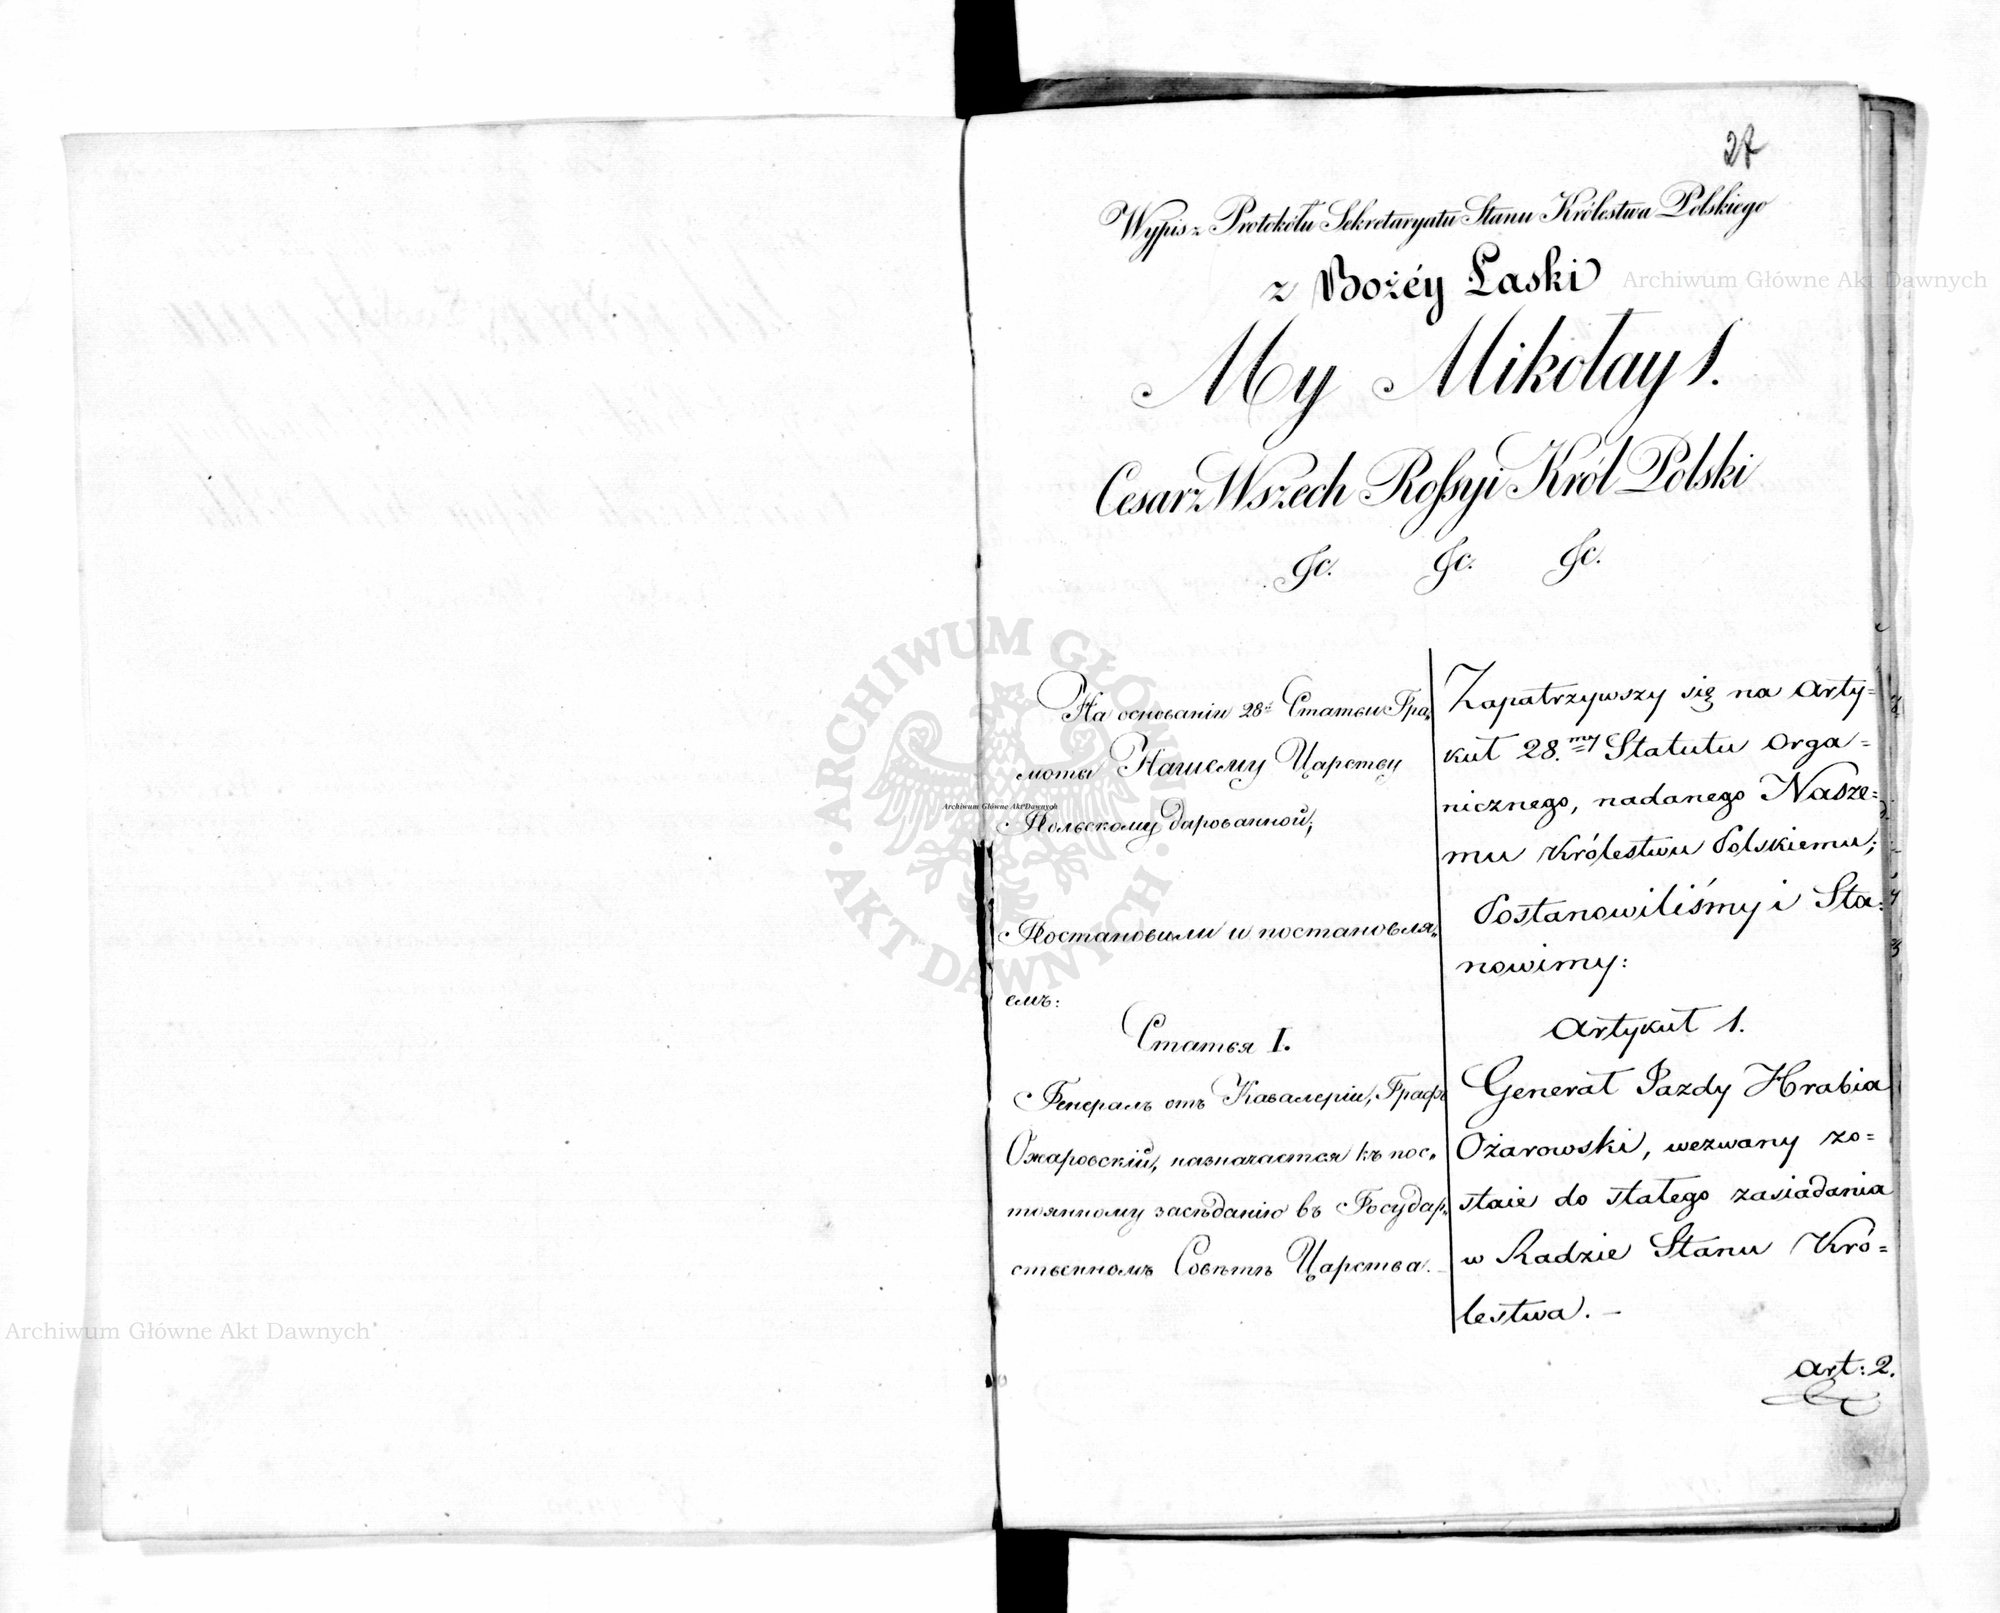 27
Wypis z Protokółu Sekretaryatu Stanu Królestwa Polskiego
z Bożéy Łaski
My Mikołay 1.
Cesarz Wszech Rossyi Król Polski
&c. &c. &c.
На основаніи 28й Статьи Гра„
моты Нашему Царству
Польскому дарованной;
Постановили и постановля„
емъ:
Статья I.
Генералъ отъ Кавалеріи, Графъ
Ожаровскій, назначается къ пос„
тоянному засѣданію въ Государ„
ственномъ Совѣтѣ Царства.
Zapatrzywszy się na Arty=
kuł 28.my Statutu Orga=
nicznego, nadanego Nasze=
mu Królestwu Polskiemu;
Postanowiliśmy i Sta=
nowimy:
Artykuł 1.
Generał Jazdy Hrabia
Ożarowski, wezwany zo=
staie do stałego zasiadania
w Radzie Stanu Kró=
lestwa. —
Art: 2.
Archiwum Główne Akt Dawnych
Archiwum Główne Akt Dawnych
Archiwum Główne Akt Dawnych
ARCHIWUM GŁÓWNE · AKT DAWNYCH ·